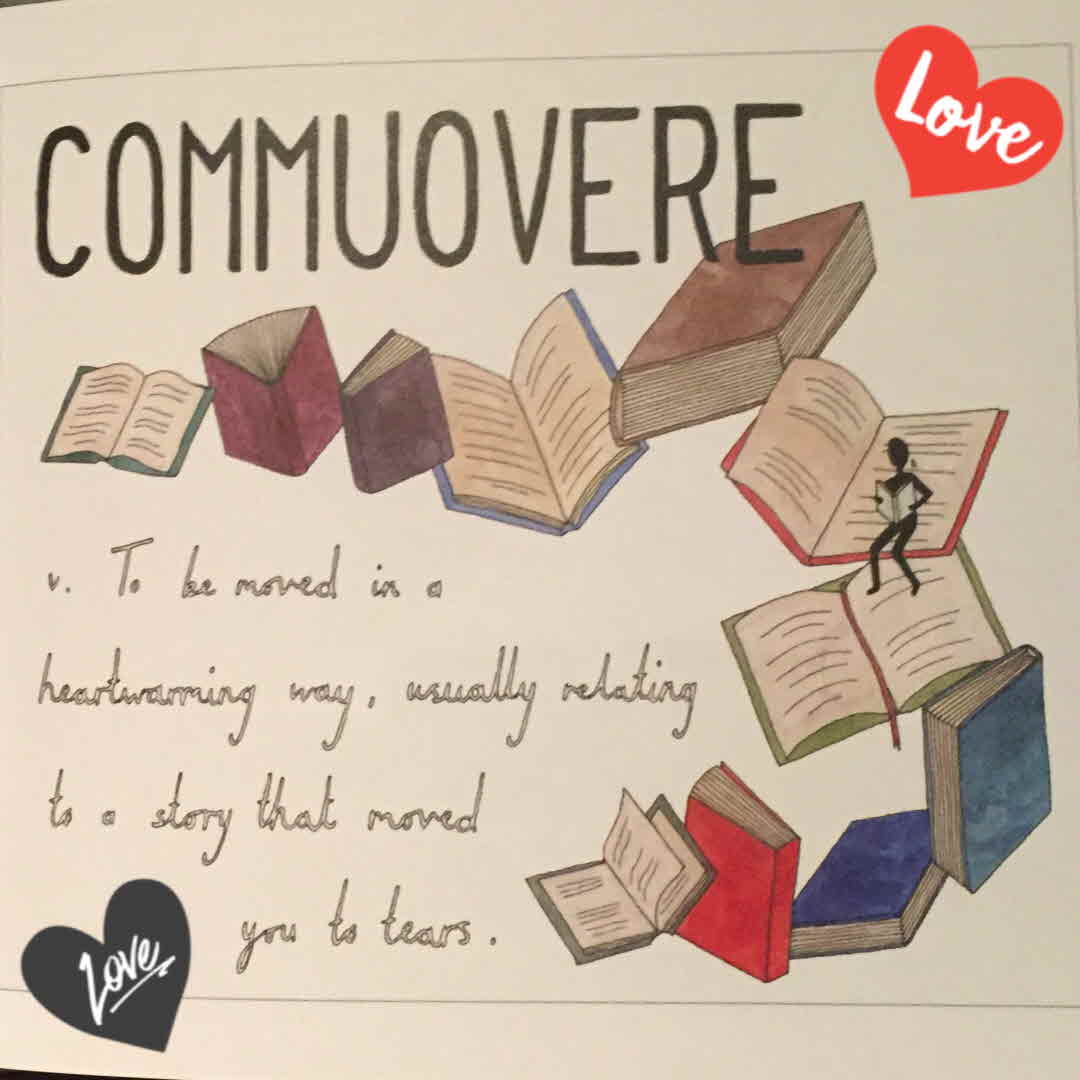 Love
COMMUOVERE
v. To be moved in a
heartwarming way, usually relating
to a story that moved
you to tears.
Love